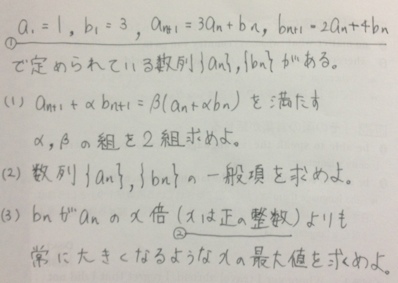 a₁ = 1 , b₁ = 3 , aₙ₊₁ = 3aₙ + bₙ , bₙ₊₁ = 2aₙ + 4bₙ
①
で定められている数列{aₙ},{bₙ}がある。
(1) aₙ₊₁ + αbₙ₊₁ = β(aₙ + αbₙ) を満たす
α, β の組を2組求めよ。
(2) 数列{aₙ},{bₙ}の一般項を求めよ。
(3) bₙがaₙのx倍(xは正の整数)よりも
②
常に大きくなるようなxの最大値を求めよ。